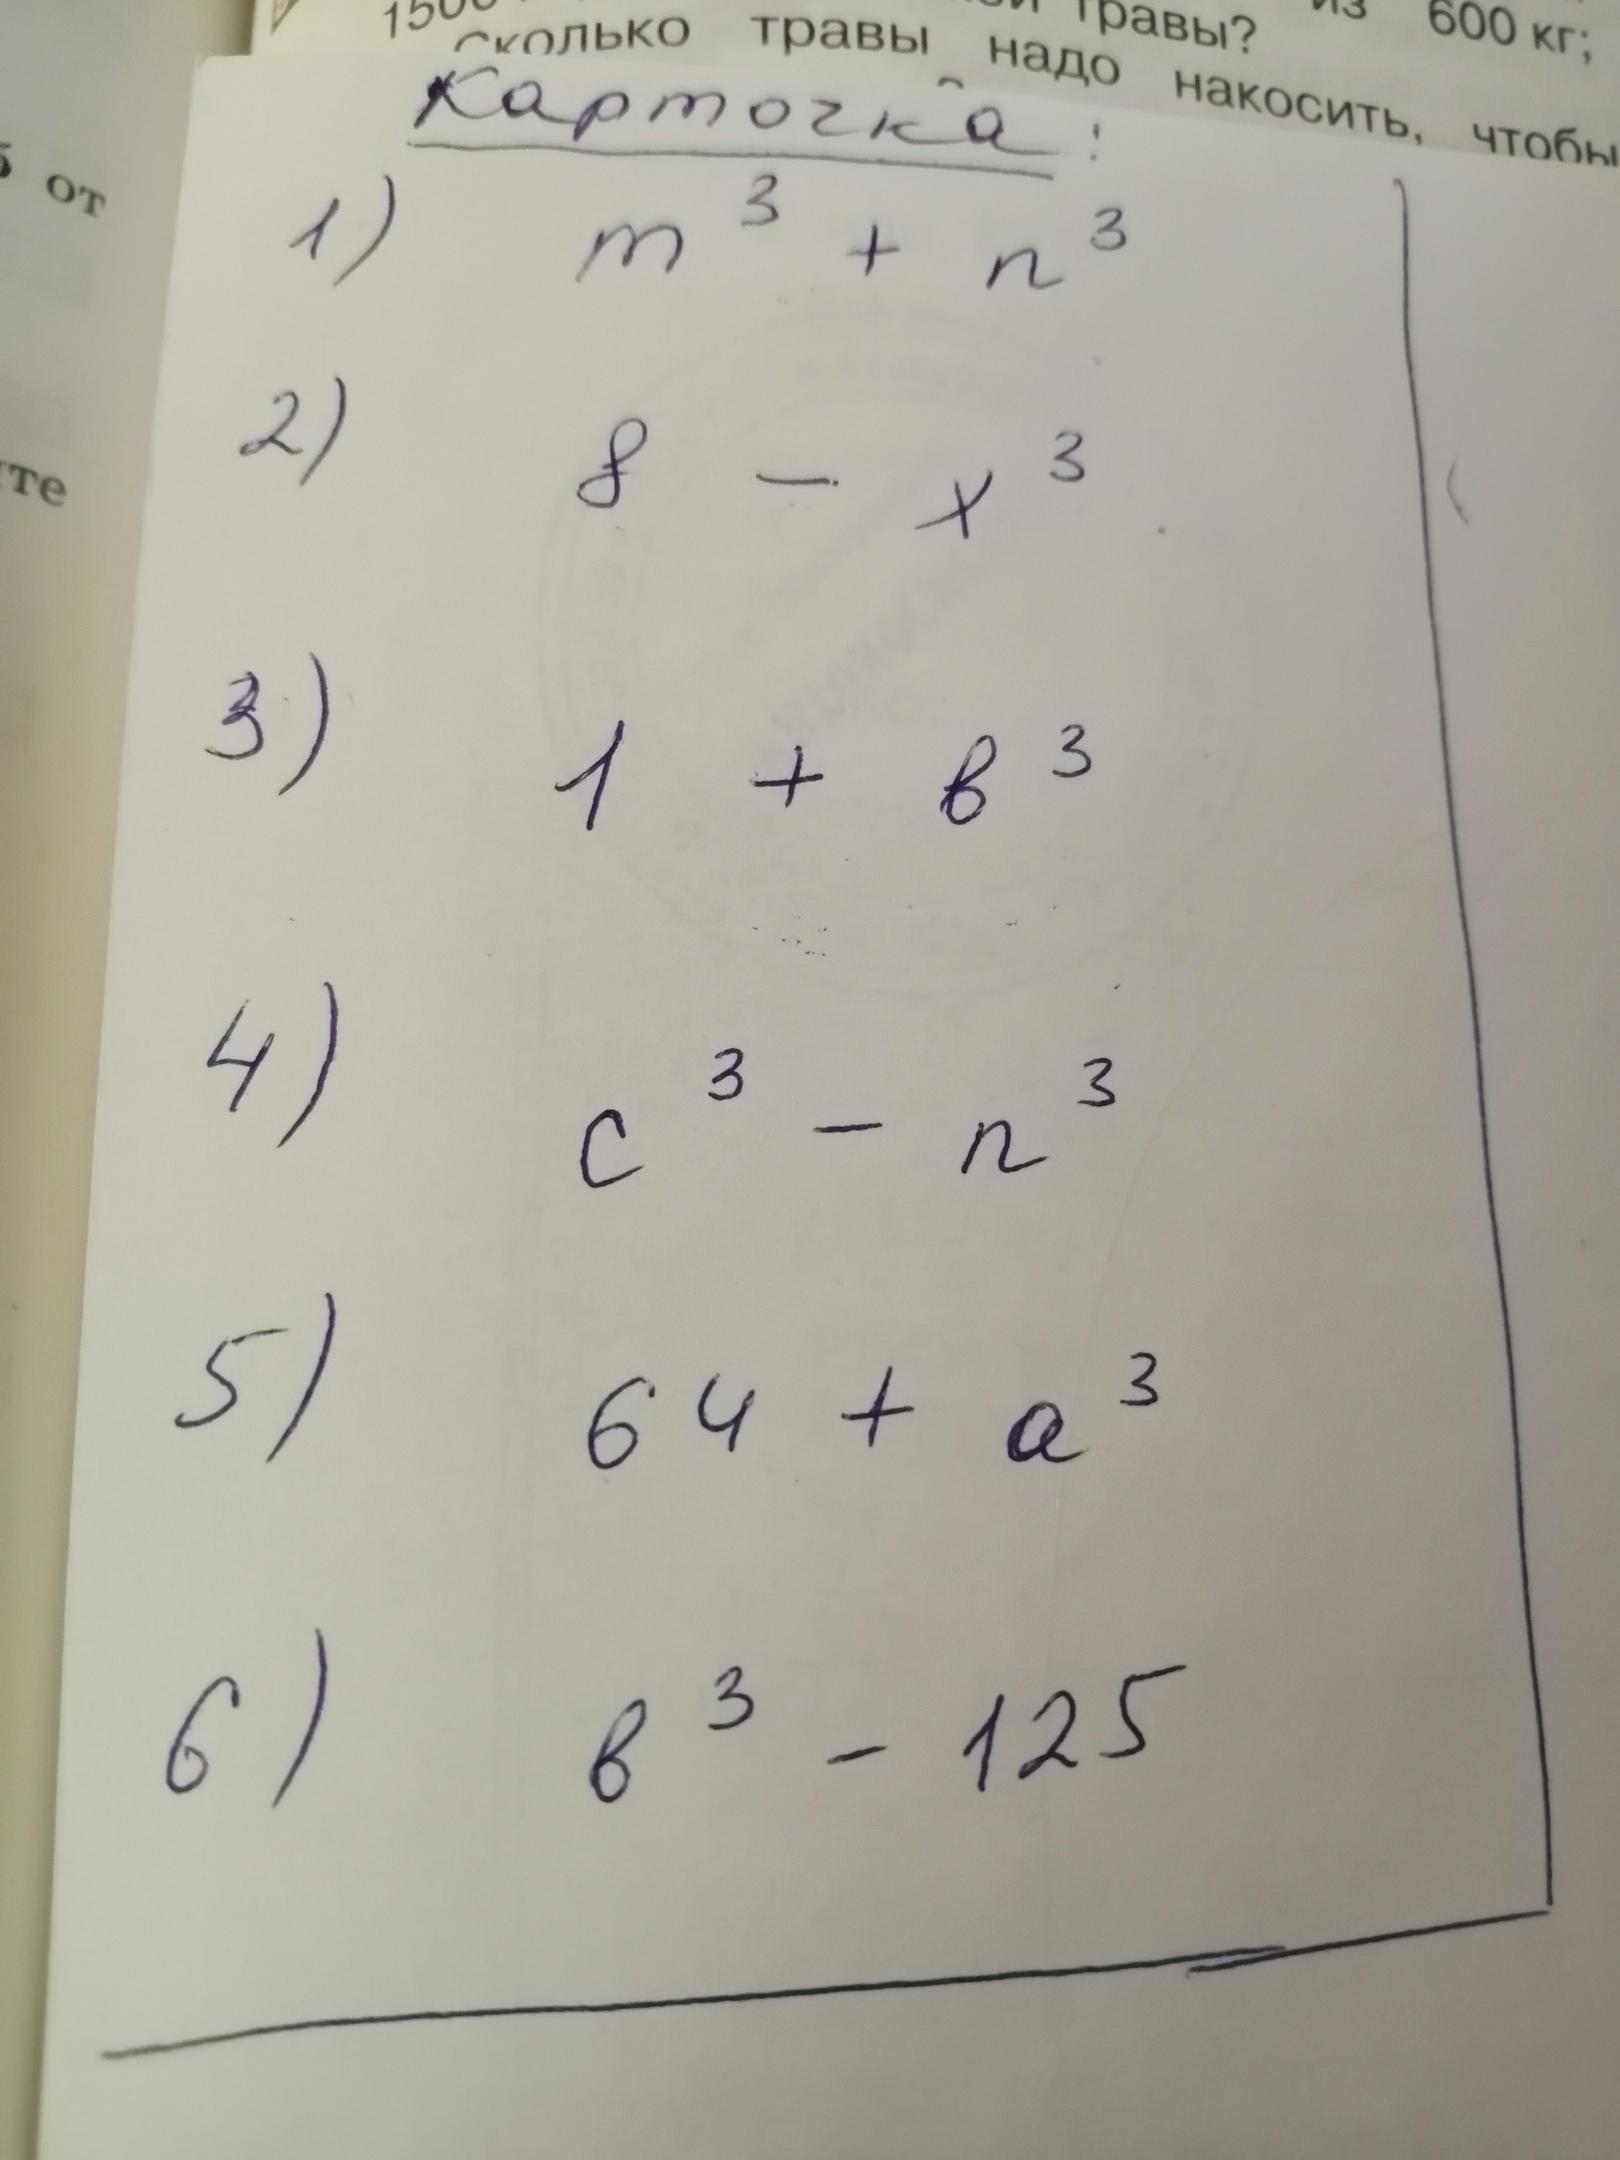 травы? из 600 кг;
сколько травы надо накосить, чтобы
от
Карточка:
1) m³ + n³
2) 8 - x³
3) 1 + в³
4) c³ - n³
5) 64 + a³
6) в³ - 125